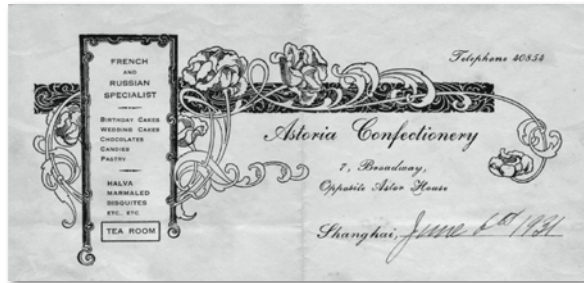 FRENCH
AND
RUSSIAN
SPECIALIST
BIRTHDAY CAKES
WEDDING CAKES
CHOCOLATES
CANDIES
PASTRY
HALVA
MARMALED
BISQUITES
ETC., ETC
TEA ROOM
Telephone 40854
Astoria Confectionery
7, Broadway,
Opposite Astor House
Shanghai, June 1931